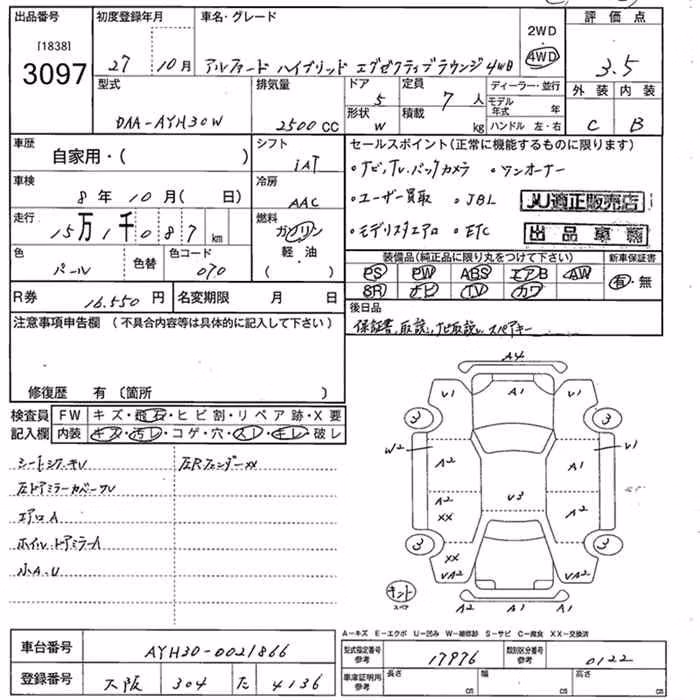 出品番号 初度登録年月 車名・グレード 2WD 評価点
[1838]
3097 27 10月 アルファード ハイブリッド エグゼクティブラウンジ 4WD 4WD 3.5
型式 排気量 ドア 5 定員 7人 ディーラー・並行 外装 内装
モデル年式 年
DAA-AYH30W 2500CC 形状 W 積載 kg ハンドル 左・右 C B
車歴 シフト セールスポイント(正常に機能するものに限ります)
自家用・( ) iAT ・ナビ,TV.バックカメラ ・ワンオーナー
車検 8年10月( 日) 冷房 AAC ・ユーザー買取 ・JBL JU適正販売店
走行 15万1千087km 燃料 ガソリン ・モデリスタエアロ ・ETC 出品車輌
軽・油
( )
色 パール 色替 色コード 070 装備品(純正品に限り丸をつけて下さい) 新車保証書
PS PW ABS エアB AW 有・無
R券 16.550円 名変期限 月 日 SR ナビ TV カワ
後日品
注意事項申告欄(不具合内容等は具体的に記入して下さい) 保証書、取説、ナビ取説、スペアキー
修復歴 有(箇所 )
検査員 FW キズ・飛石・ヒビ割・リペア跡・X要
記入欄 内装 キズ・汚レ・コゲ・穴・スレ・キレ・破レ
左RフェンダーXX
左ドアミラーカバーウレ
エアロA
ホイル、ドアミラーA
小A.U
A4
V1 A1 V1
3 3
W2 A2 A1 V1
V3
A2 XX A2
3 3
XX
VA2 VA2
スペア
A2 A1 A1
A-キズ E-エクボ U-凹み W-補修跡 S-サビ C-腐食 XX-交換済
車台番号 AYH30-0021866 型式指定番号 参考 17976 類別区分番号 参考 0122
登録番号 大阪 304 た 4136 車庫証明用 参考 長さ cm 幅 cm 高さ cm